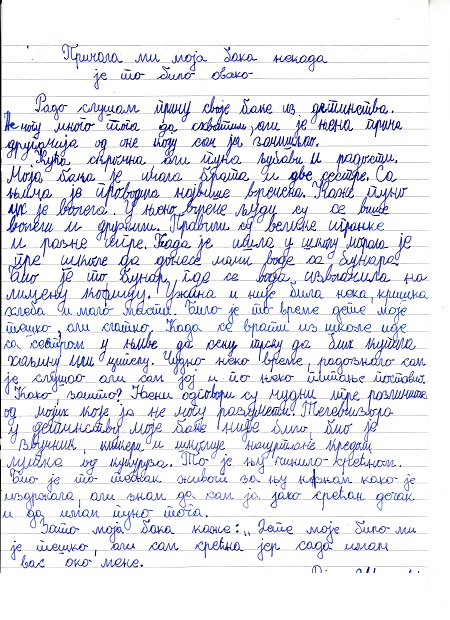 Причала ми моја бака некада
је то било овако
Радо слушам причу своје баке из детинства.
Не могу много тога да схватим, али је њена прича
другачија од оне коју сам ја замишљао.
Кућа скромна али пуна љубави и радости.
Моја бака је имала брата и две сестре. Са
њима је проводила највише времена. Каже пуно
их је волела. У њено време људи су се више
волели и дружили. Правили су велике игранке
и разне игре. Када је ишла у школу морала је
пре школе да донесе мами воде са бунара.
Био је то бунар, где се вода извлачила на
лимену кофицу. Ужина и није била нека, кришка
хлеба и мало масти. Било је то време дете моје
тешко, али слатко. Када се врати из школе иде
са сестром у њиве да би купила
хаљину или ципелу. Чудно неко време, радознало сам
је слушао али сам јој и по неко питање поставио.
Како, зашто? Њени одговори су чудни
од мојих које ја не могу разумети. Телевизора
у детинству моје баке није било, био је
звучник, кликери и
лутка од кукуруза. То је њу чинило срећном.
Био је то тежак живот за њу како је
издржала, али знам да сам ја јако срећан дечак
и да имам пуно тога.
Зато моја бака каже: „Дете моје било ми
је тешко, али сам срећна јер сада имам
вас око мене.